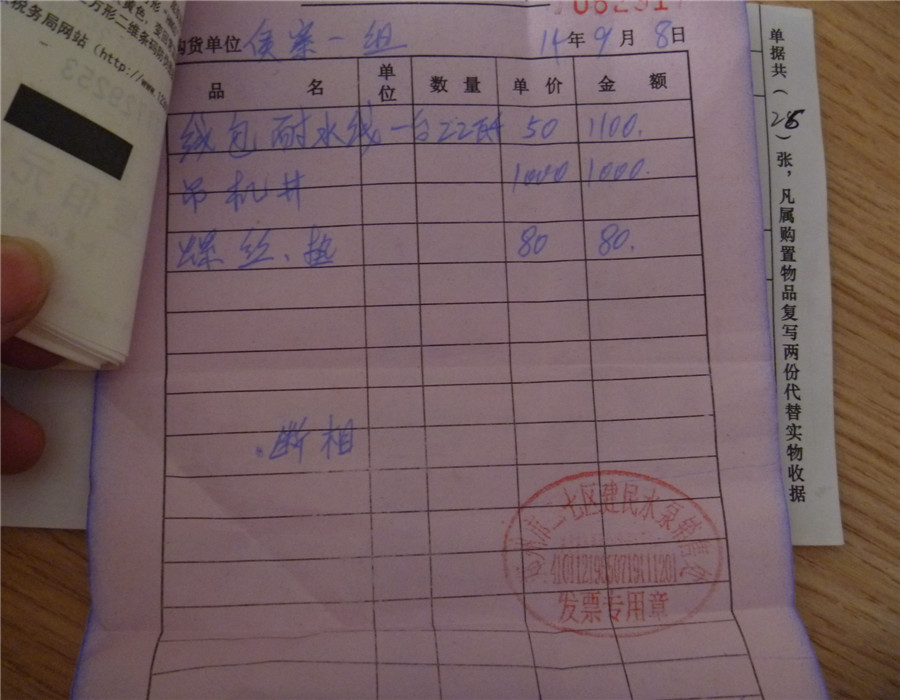 税务局网站(http://www.
购货单位 侯寨一组 14年9月8日
品 名 单位 数量 单价 金额
线包耐水线 一台 22 50 1100.
吊机井 1000 1000.
螺丝、垫 80 80.
断相
二七区建民水泵销售
发票专用章
单据共(26)张,凡属购置物品复写两份代替实物收据